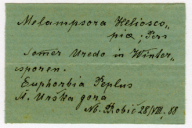 Melampsora Heliosco-
piæ. Pers
Somer Uredo in Winter-
sporen.
Euphorbia Peplus
St. Urška gora
Nb. Robič 28/VIII. 88